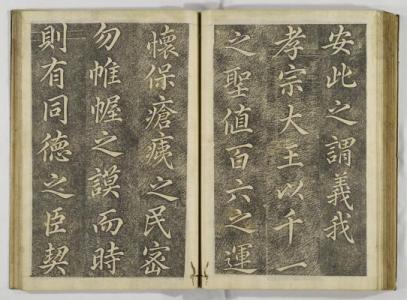 安此之謂義我
孝宗大王以千一
之聖值百六之運
懷保瘡痍之民密
勿帷幄之謨而時
則有同德之臣契